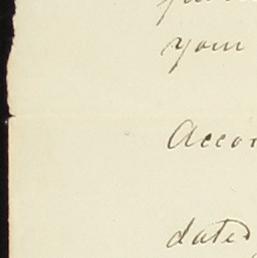 your
Accor
dated